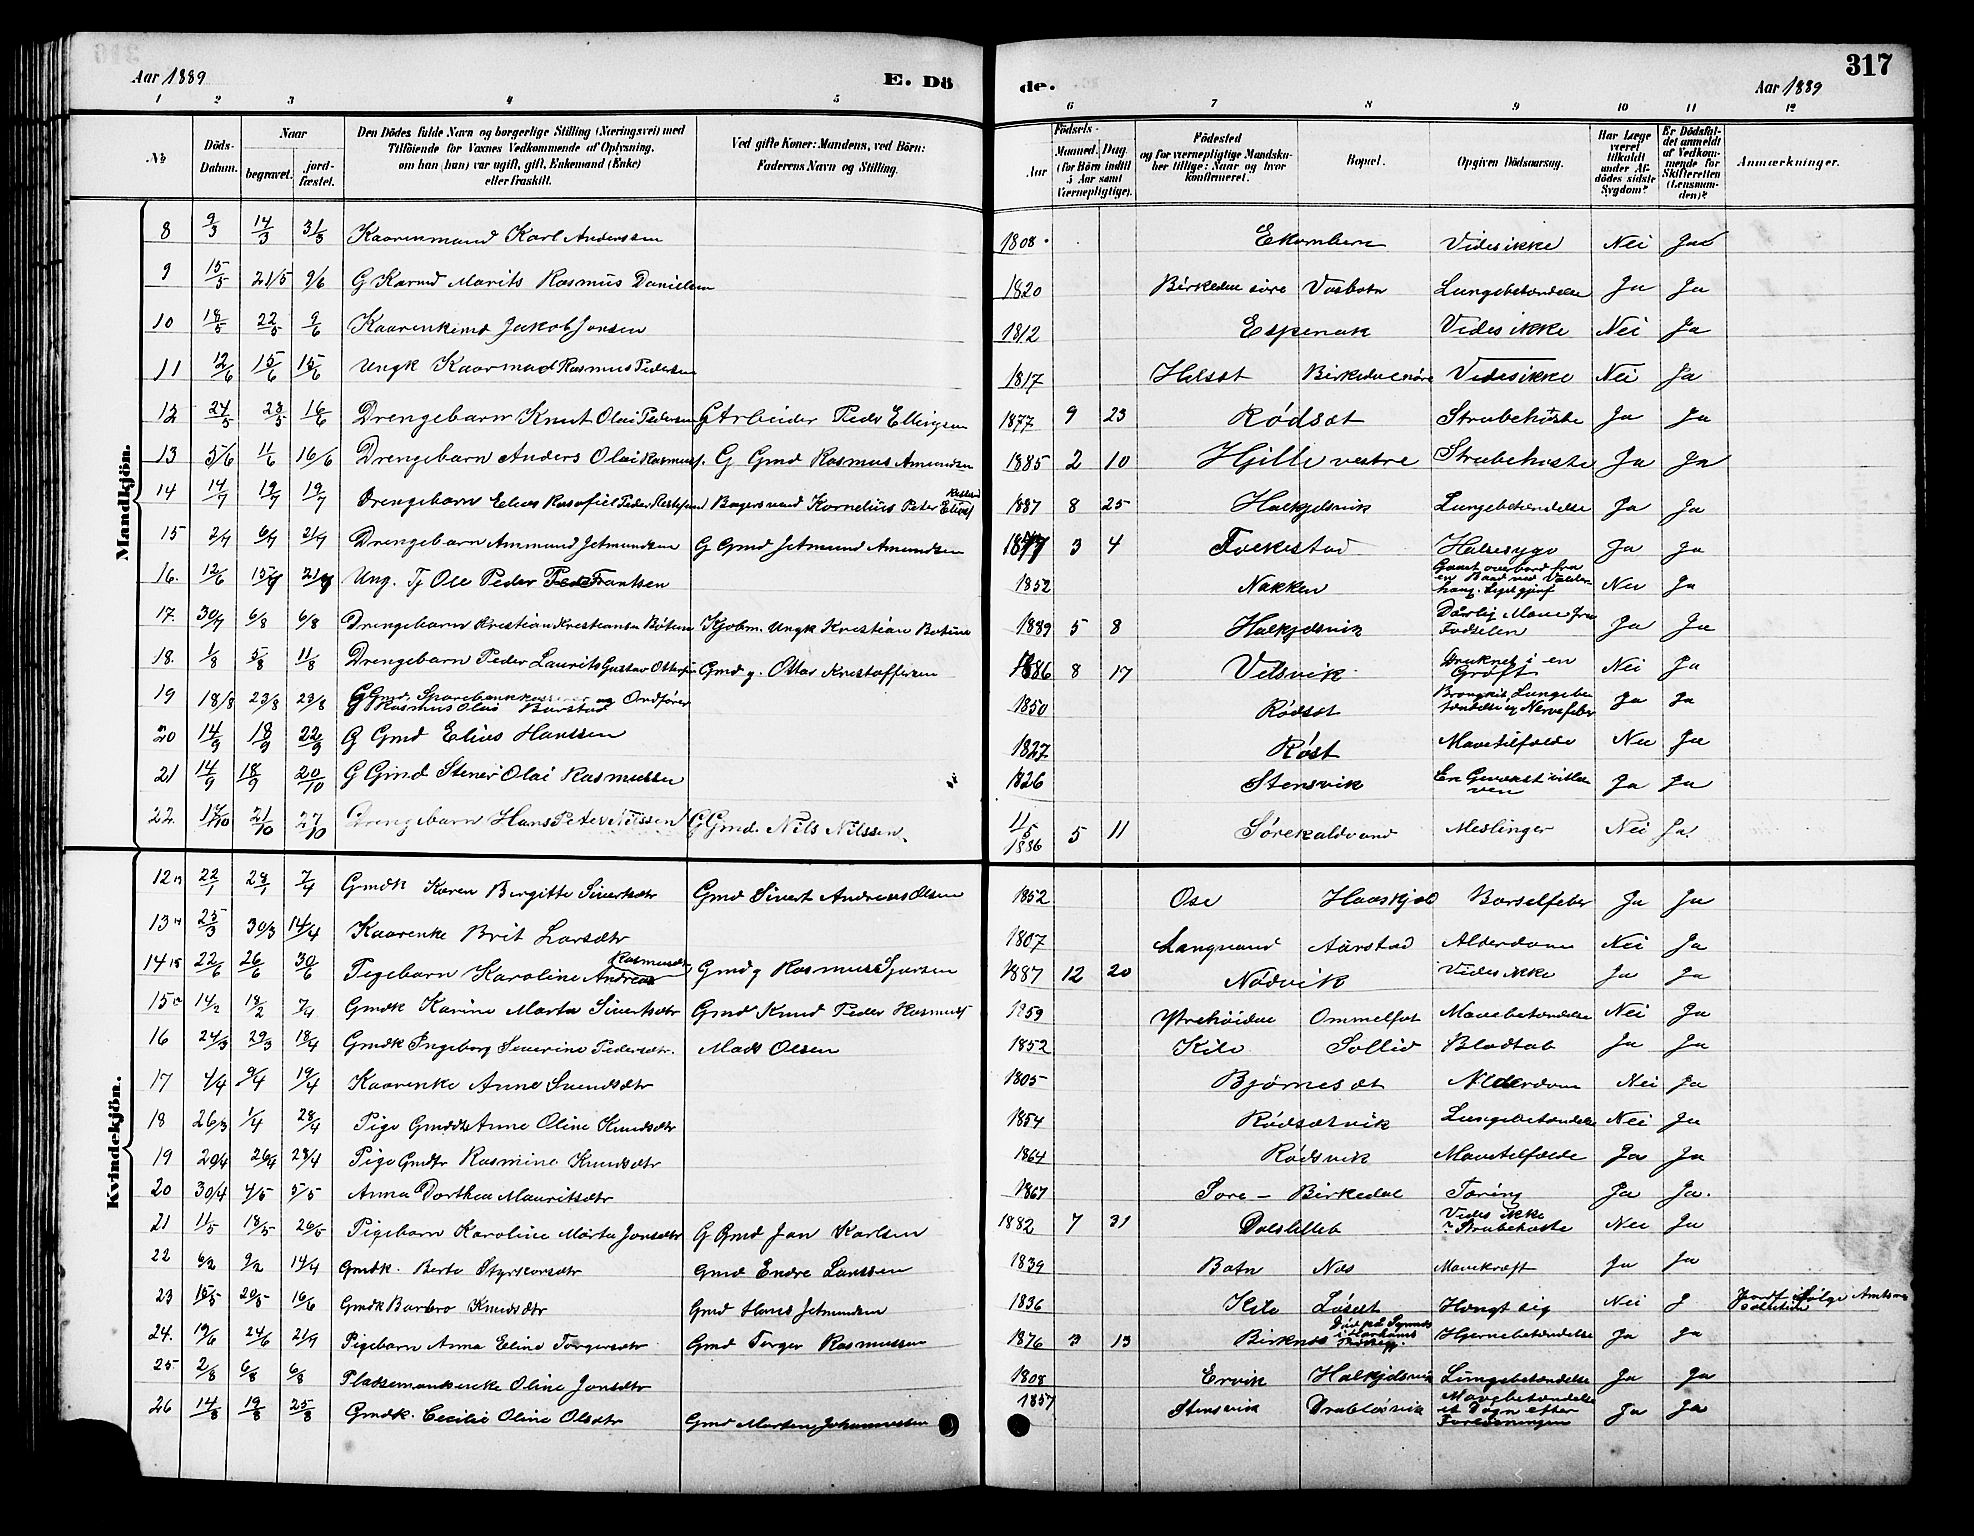 317
Aar 1889 E. Döde. Aar 1889
1 2 3 4 5 6 7 8 9 10 11 12
No Döds-Datum. Naar begravet. jordfæstet. Den Dödes fulde Navn og borgerlige Stilling (Næringsvei) med Tilföiende for Voxnes Vedkommende af Oplysning, om han (hun) var ugift, gift, Enkemand (Enke) eller fraskilt. Ved gifte Koner: Mandens, ved Börn: Faderens Navn og Stilling. Födsels- Aar Maaned. Dag (for Börn indtil 5 Aar samt Værnepligtige). Födested og for værnepligtige Mandskaber tillige: Naar og hvor konfirmeret. Bopæl. Opgiven Dödsaarsag. Har Læge været tilkaldt under Afdödes sidste Sygdom? Er Dödsfaldet anmeldt af Vedkommende for Skifteretten (Lensmanden)? Anmærkninger.
Mandkjön.
8 9/3 14/3 31/3 Kaarenmand Karl Anderssen 1808 Ekornberg Vides ikke Nei Ja
9 15/5 21/5 9/6 G Karmd Marits Rasmus Danielsen 1820 Birkedal søre Vasbotn Lungebetændelse Ja Ja
10 18/5 22/5 9/6 Kaarenkemd Jakob Jonsen 1812 Espenak Vides ikke Nei Ja
11 12/6 15/6 15/6 Ungk Kaarmand Rasmus Pedersen 1817 Helsæt Birkedal nøre Vides ikke Nei Ja
12 24/5 28/5 16/6 Drengebarn Knut Olai Pedersen G Arbeider Peder Ellingsen 1877 9 23 Rødsæt Strubehoste Ja Ja
13 5/6 11/6 16/6 Drengebarn Anders Olai Rasmuss. G Gmd Rasmus Amundsen 1885 2 10 Hjelle vestre Strubehoste Ja Ja
14 14/7 19/7 19/7 Drengebarn Elias Rasofiel Peder Bagersvend Kornelius Peter Eliass 1887 8 25 Halkjelsvik Lungebetændelse Ja Ja
15 2/7 6/7 21/7 Drengebarn Ammund Jetmundsen G Gmd Jetmund Amundsen 1877 3 4 Folkestad Halsesyge Ja Ja
16. 12/6 15/7 21/7 Ung. Tj Ole Peder Frantsen 1852 Nakken Gaaet overbord fra en Baad ved Nei Ja
17. 30/7 6/8 6/8 Drengebarn Kristian Kristiansen Botnen Kjøbm. Ungk Kristian Botnen 1889 5 8 Halkjelsvik Daarlig Mave fra Fødselen Ja Ja
18. 1/8 5/8 11/8 Drengebarn Peder Laurits Gustav Ottersen Gmd g. Ottar Kristoffersen 1886 8 17 Velsvik Druknet i en Grøft Nei Ja
19 18/8 23/8 23/8 G Gmd, Sparebankkasserer og Ordfører Rasmus Olai Barstad 1850 Rødsæt Bronkit, Lungebetændelse og Nervefeber Ja Ja
20 14/9 18/9 22/9 G Gmd Elias Hanssen 1827 Røst Mavetilfælde Nei Ja
21 14/9 18/9 20/10 G Gmd Stener Olai Rasmussen 1826 Stensvik En Gevækst i Ja Ja
22. 17/10 21/10 27/10 Drengebarn Hans Peter Nilssen G Gmd. Nils Nilssen. 11/5 1886 5 11 Sørekaldvand Meslinger Nei Ja.
Kvindekjön.
12 22/1 28/1 7/4 Gmdk Karen Birgitte Sivertsdtr Gmd Sivert Andreas Olsen 1852 Ose Haaskjold Barselfeber Ja Ja
13 25/3 30/3 14/4 Kaarenke Brit Larsdtr 1807 Langvand Aarstad Alderdom Nei Ja
14 22/6 26/6 30/6 Pigebarn Karoline Andrea Rasmusdtr Gmd g Rasmus Sjursen 1887 12 20 Nødvik Vides ikke Ja Ja
15 14/2 18/2 7/4 Gmdk Karine Marta Sivertsdtr Gmd Knud Peder Rasmuss 1859 Ytrehøidal Ommelfot Mavebetændelse Nei Ja
16 24/3 29/3 18/4 Gmdk Ingeborg Severine Pedersdtr. Mads Olsen 1852 Kile Sollid Blodtab Ja Ja
17 4/4 9/4 19/4 Kaarenke Anne Svendsdtr 1805 Bjørnesæt Alderdom Nei Ja
18 26/3 1/4 28/4 Pige Gmddtr Anne Oline Knudsdtr 1854 Rødsætvik Lungebetændelse Nei Ja
19 20/4 26/4 28/4 Pige Gmdtr Rasmine Knudsdtr 1864 Rødsvik Mavetilfælde Ja Ja
20 30/4 4/5 5/5 Anna Dorthea Mauritsdtr 1867 Søre - Birkedal Tæring Ja Ja.
21 11/5 18/5 26/5 Pigebarn Karoline Marta Jonsdtr G Gmd Jon Karlsen 1882 7 31 Dalslilleb Vides ikke ? Strubehoste Nei Ja
22 6/2 9/2 14/4 Gmdk. Berte Styrkorsdtr Gmd Endre Larssen 1839 Botn Nes Mavekræft Ja Ja
23 16/5 20/5 16/6 Gmdk Barbro Knudsdtr Gmd Hans Jetmundsen 1836 Kile Løset Hængt sig Nei J Jordf ifølge Amts
24. 19/6 24/6 21/7 Pigebarn Anna Eline Torgersdtr Gmd Torger Rasmussen 1876 3 13 Birknes Hjernebetændelse Ja Ja
25 2/8 6/8 6/8 Pladsemandsenke Oline Jonsdtr 1808 Ervik Halkjelsvik Lungebetændelse Ja Ja
26 14/8 19/8 25/8 Gmdk. Cecilie Oline Olsdtr Gmd Morten Johannessen 1857 Stensvik Drabløsvik Mavebetændelse et Døgn efter Forløsningen Ja Ja